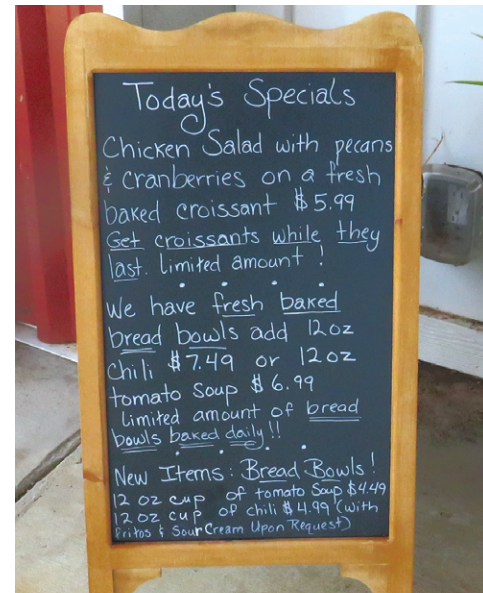 Today's Specials
Chicken Salad with pecans
& cranberries on a fresh
baked croissant $5.99
Get croissants while they
last. limited amount!
We have fresh baked
bread bowls add 12oz
Chili $7.49 or 12oz
tomato Soup $6.99
limited amount of bread
bowls baked daily!!
New Items: Bread Bowls!
12 oz cup of tomato Soup $4.49
12 oz cup of chili $4.99 (with
Fritos & Sour Cream Upon Request)